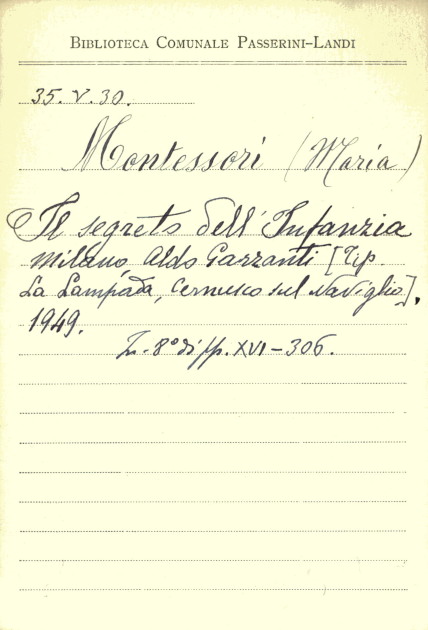 BIBLIOTECA COMUNALE PASSERINI-LANDI
35. V. 30.
Montessori (Maria)
Il segreto dell'Infanzia
Milano, Aldo Garzanti [Tip.
La Lampada, Cernusco sul Naviglio],
1949.
8° di pp. XVI-306.